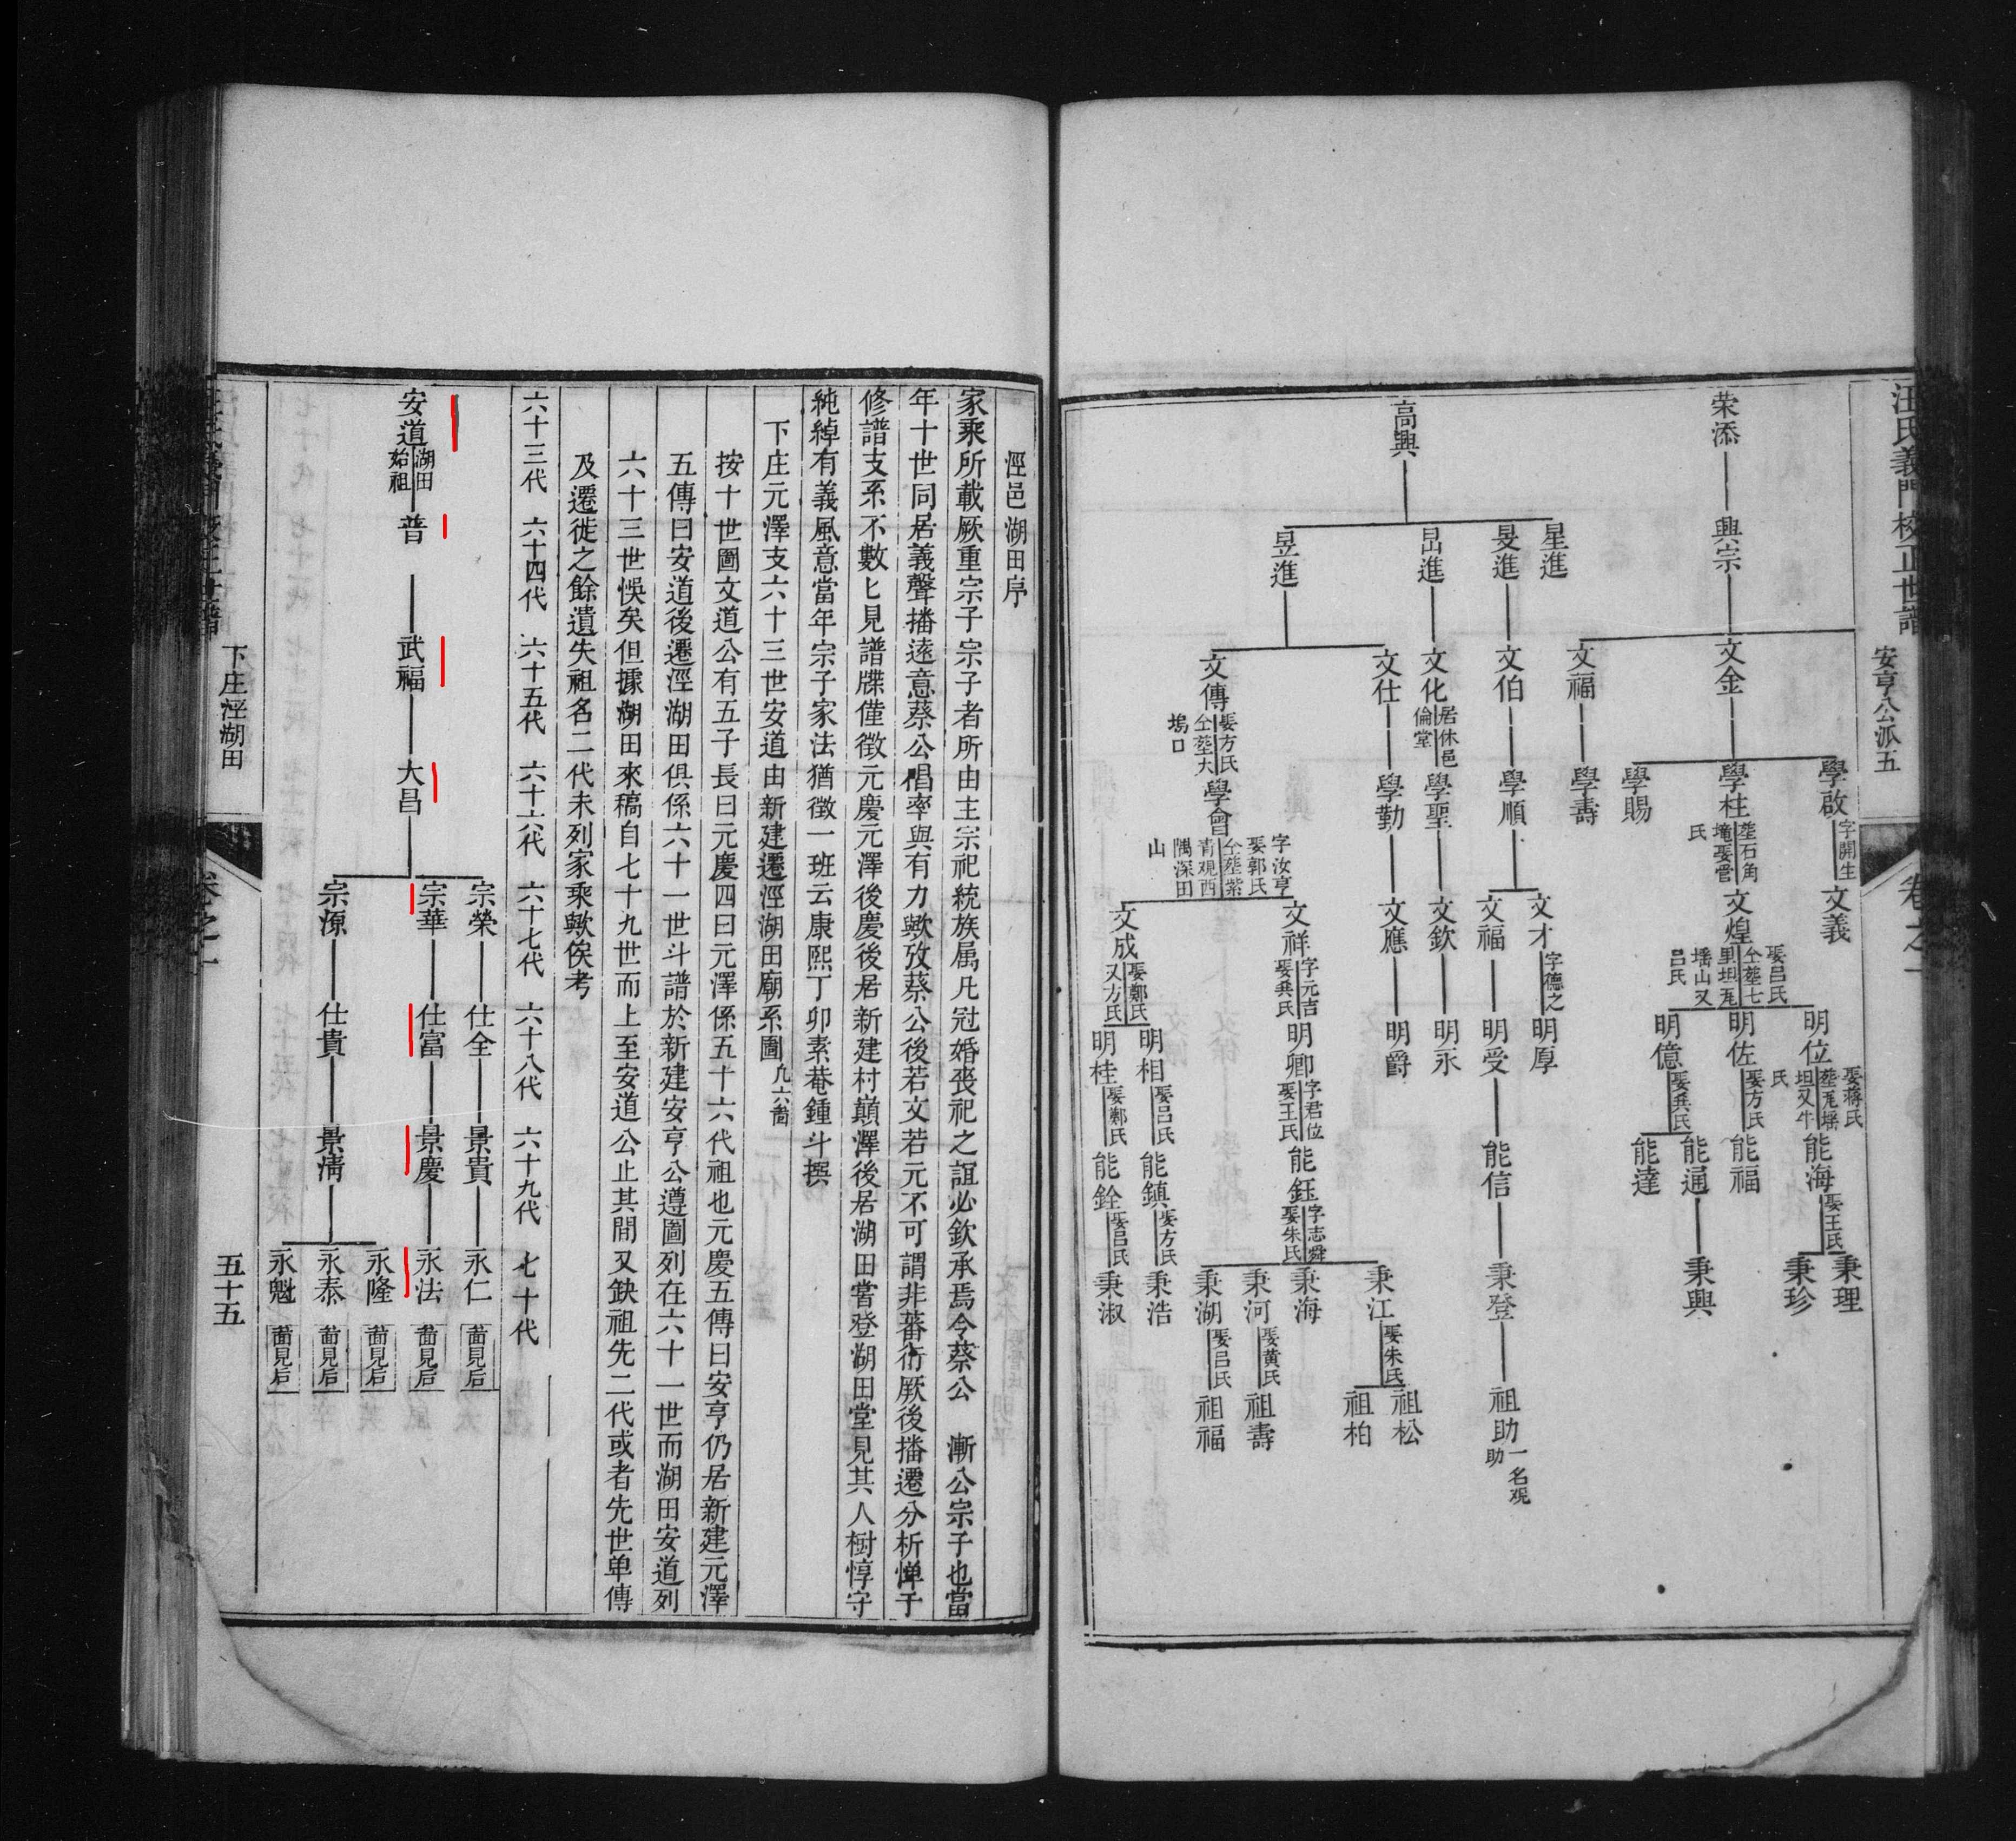 汪氏義門校正世譜
安亨公派五
卷之一
荣添
興宗
文金
文福
學啟 字開生
學柱
學賜
學壽
文義
文煌
明位
明佐 娶方氏
明億 娶吳氏
能海 娶王氏
能福
能通
能達
秉理
秉珍
秉興
高興
星進
旻進
昌進
昱進
文伯
文化 居休邑倫堂
文仕
文傳 娶方氏仝塟大塢口
學順
學聖
學勤
學會 字汝亨娶郭氏仝塟紫青观西隅深田山
文才 字德之
文福
文欽
文應
文祥 字元吉娶吳氏
文成 娶鄭氏又方氏
明厚
明受
明永
明爵
明卿 字君位娶王氏
明相 娶呂氏
明桂 娶鄭氏
能信
能鈺 字志舜娶朱氏
能鎮 娶方氏
能銓 娶呂氏
秉登
秉江 娶朱氏
秉海
秉河 娶黃氏
秉湖 娶呂氏
秉浩
秉淑
祖助 一名观助
祖松
祖柏
祖壽
祖福
涇邑湖田序
家乘所載厥重宗子宗子者所由主宗祀統族属凡冠婚喪祀之誼必欽承焉今蔡公 漸公宗子也當
年十世同居義聲播遠意蔡公倡率與有力歟攷蔡公後若文若元不可謂非蕃衍厥後播遷分析憚于
修譜支系不數匕見譜牒僅徵元慶元澤後慶後居新建村巔澤後居湖田嘗登湖田堂見其人樹惇守
純綽有義風意當年宗子家法猶徵一班云康熙丁卯素菴鍾斗撰
下庄元澤支六十三世安道由新建遷涇湖田廟系圖 凡六啚
按十世圖文道公有五子長曰元慶四曰元澤係五十六代祖也元慶五傳曰安亨仍居新建元澤
五傳曰安道後遷涇湖田俱係六十一世斗譜於新建安亨公遵圖列在六十一世而湖田安道列
六十三世悞矣但據湖田來稿自七十九世而上至安道公止其間又缺祖先二代或者先世单傳
及遷徙之餘遺失祖名二代未列家乘歟俟考
六十三代 六十四代 六十五代 六十六代 六十七代 六十八代 六十九代 七十代
安道 湖田始祖
普
武福
大昌
宗榮
宗華
宗源
仕全
仕富
仕貴
景貴
景慶
景清
永仁 啚見后
永法 啚見后
永隆 啚見后
永泰 啚見后
永魁 啚見后
下庄涇湖田
卷之一
五十五